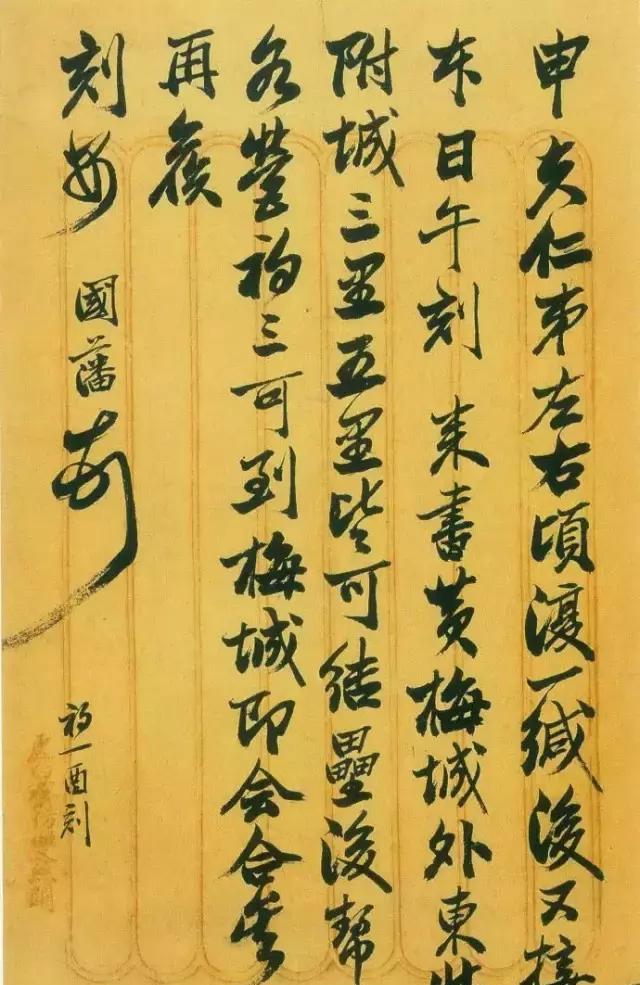 申夫仁弟左右頃復一緘後又接
本日午刻来書黄梅城外東
附城三里五里皆可结壘後幫
各營初三可到梅城即会合
再復
刻安 國藩
初一酉刻